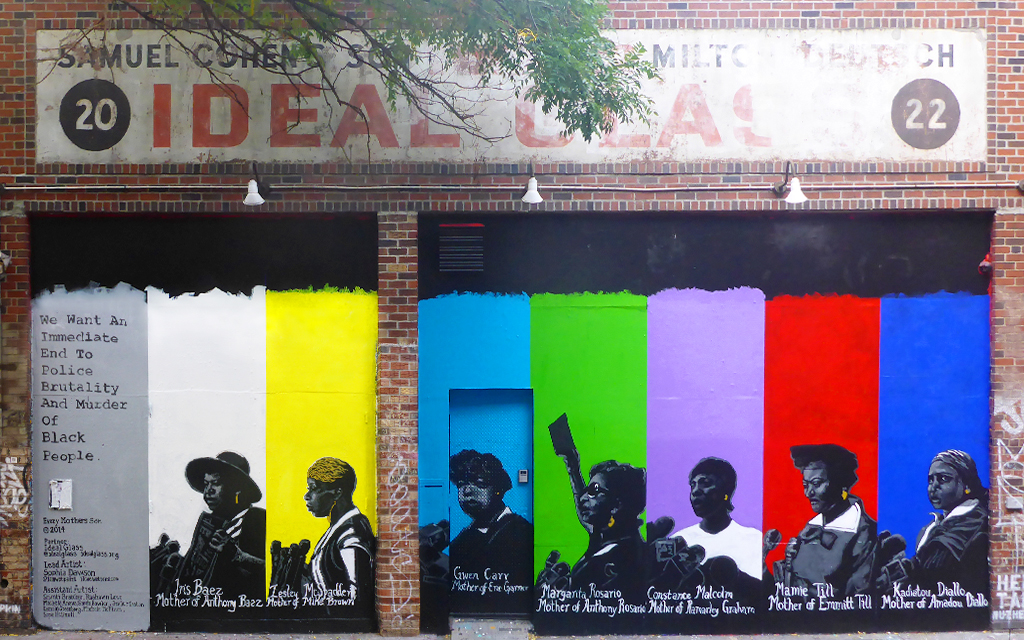 SAMUEL COHEN'S
20
IDEAL
22
We Want An
Immediate
End To
Police
Brutality
And Murder
Of
Black
People.
Every Mothers Son
© 2014
Partner:
Ideal Glass
Lead Artist:
Sophia Dawson
Assistant Artist:
Iris Baez
Mother of Anthony Baez
Lesley McSpadden
Mother of Mike Brown
Gwen Carr
Mother of Eric Garner
Margarita Rosario
Mother of Anthony Rosario
Constance Malcolm
Mother of Ramarley Graham
Mamie Till
Mother of Emmitt Till
Kadiatou Diallo
Mother of Amadou Diallo